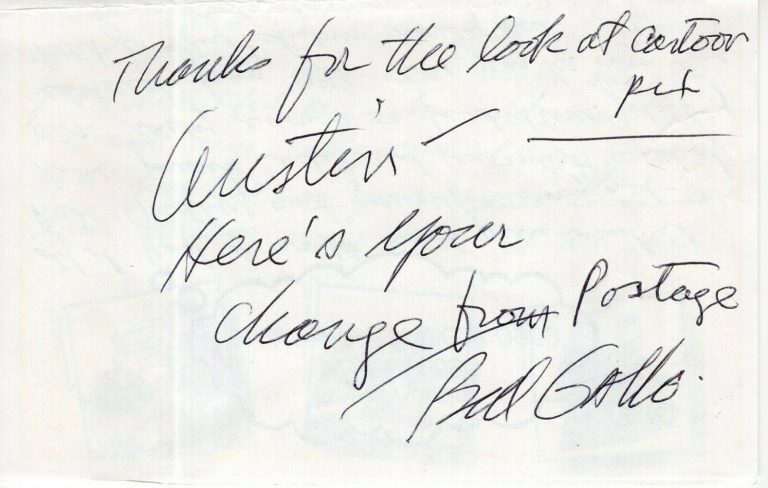 Thanks for the look at cartoon
Austin –
Here's your
change from Postage
Bill Gallo.